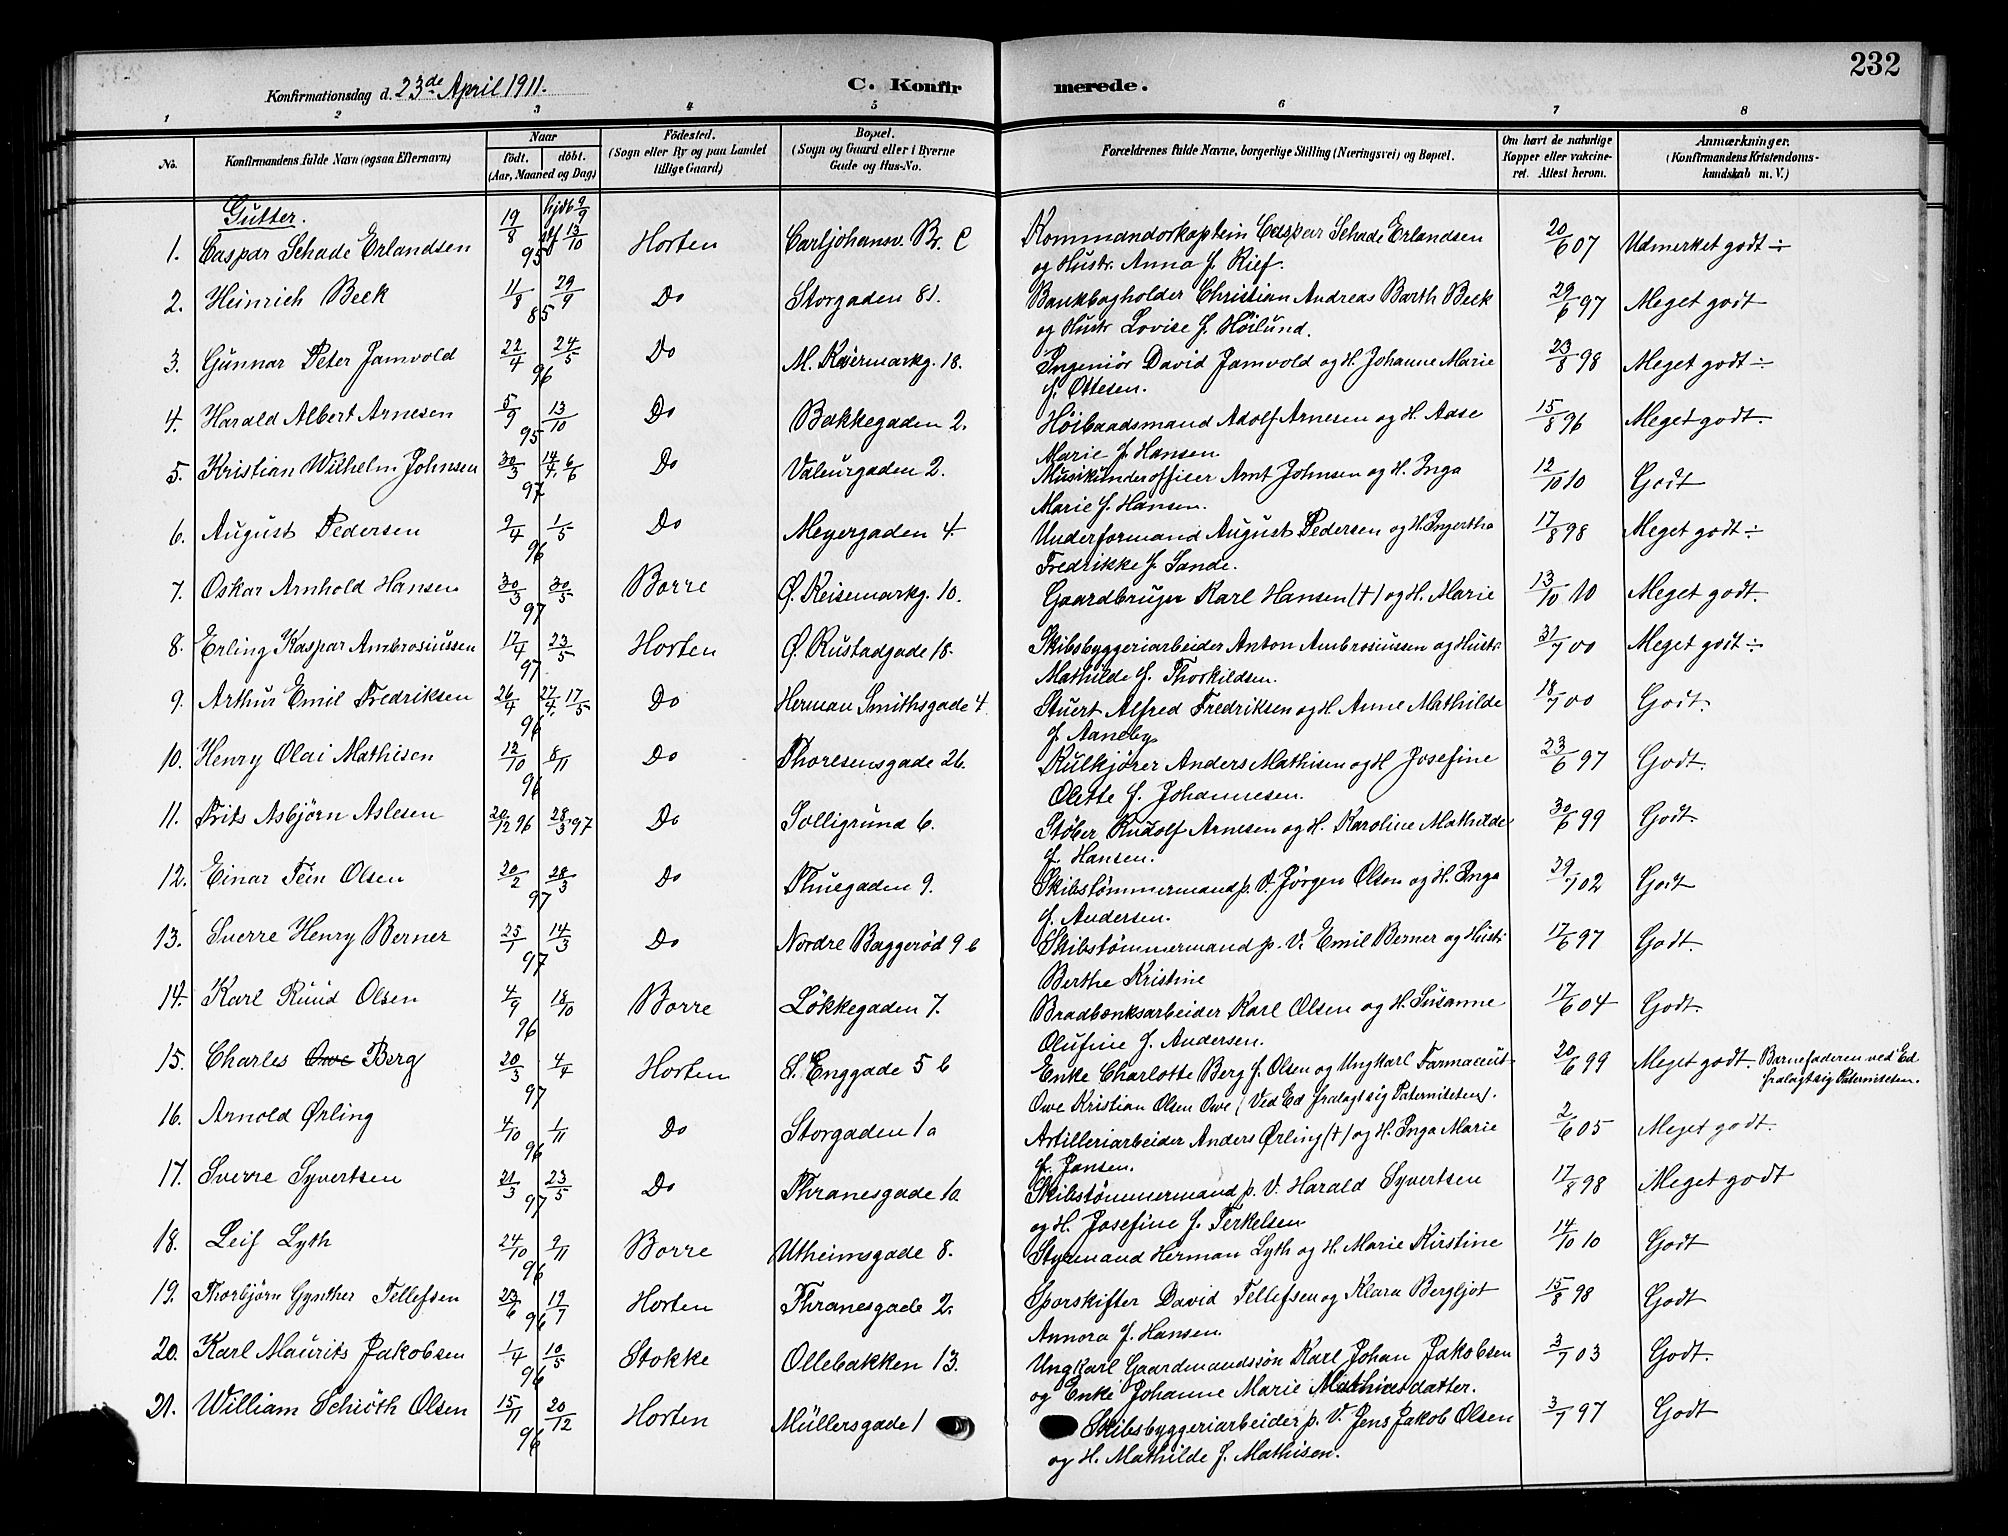 232
Konfirmationsdag d. 23de April 1911. C. Konfir merede.
1 2 3 4 5 6 7 8
No. Konfirmandens fulde Navn (ogsaa Efternavn) Naar født. døbt. (Aar, Maaned og Dag) Fødested. (Sogn eller By og paa Landet tillige Gaard) Bopæl. (Sogn og Gaard eller i Byerne Gade og Hus-No. Forældrenes fulde Navne, borgerlige Stilling (Næringsvei) og Bopæl. Om havt de naturlige Kopper eller vakcineret. Attest herom. Anmærkninger. (Konfirmandens Kristendomskundskab m. V.)
Gutter.
1. Caspar Schade Erlandsen 19/8 95 hjdb 9/9 13/10 Horten Carljohansv. Br. C Kommandørkaptein Caspar Schade Erlandsen 20/6 07 Udmerket godt ÷
og Hustr. Anna f. Kief.
2. Heinrich Beck 11/8 85 29/9 Do Storgaden 81. Bankbogholder Christian Andreas Barth Beck 29/6 97 Meget godt
og Hustr Lovise f. Høilund.
3. Gunnar Peter Jamvold 22/4 96 24/5 Do M. Keiermarkg. 18. Ingeniør David Jamvold og H. Johanne Marie 23/8 98 Meget godt ÷
f. Ottesen.
4. Harald Albert Arnesen 5/9 95 13/10 Do Bakkegaden 2. Høibaadsmand Adolf Arnesen og H. Aase 15/8 96 Meget godt.
Marie f. Hansen
5. Kristian Wilhelm Johnsen 30/3 97 14/4. 6/6 Do Valeurgaden 2. Musikunderofficer Amt Johnsen og H. Inga 12/10 10 Godt
Marie f. Hansen.
6. August Pedersen 9/4 96 1/5 Do Meyergaden 4. Underformand August Pedersen og H. Ingertha 17/8 98 Meget godt ÷
Fredrikke f. Sande.
7. Oskar Arnhold Hansen 30/3 97 30/5 Borre Ø. Keisemarkg. 10. Gaardbruger Karl Hansen (†) og H. Marie 13/10 10 Meget godt.
8. Erling Kaspar Ambrosiussen 17/4 97 23/5 Horten Ø. Rustadgade 18. Skibsbyggeriarbeider Anton Ambrosiussen og Hustr. 31/7 00 Meget godt ÷
Mathilde f. Thorkildsen.
9. Arthur Emil Fredriksen 26/4 96 27/4. 17/5 Do Herman Smithsgade 4 Stuert Alfred Fredriksen og H. Anne Mathilde 18/7 00 Godt.
f. Aaneby
10. Henry Olai Mathisen 12/10 96 8/11 Do Thoresensgade 26. Kulkjører Anders Mathisen og H Josefine 23/6 97 Godt.
Olette f. Johannesen.
11. Frits Asbjørn Aslesen 20/12 96 28/3 97 Do Solligrund 6. Støber Rudolf Arnesen og H. Karoline Mathilde 30/6 99 Godt.
f. Hansen.
12. Einar Fein Olsen 20/2 97 28/3 Do Thuegaden 9. Skibstømmermand p. V. Jørgen Olsen og H. Inga 29/7 02 Godt
f. Andersen.
13. Sverre Henry Berner 25/1 97 14/3 Do Nordre Baggerød 9 b Skibstømmermand p. V. Emil Berner og Hustr 17/6 97 Godt.
Berthe Kristine
14. Karl Ruud Olsen 4/9 96 18/10 Borre Løkkegaden 7. Bradbænksarbeider Karl Olsen og H. Susanne 17/6 04 Godt.
Olufine f. Andersen.
15. Charles Owe Berg 20/3 97 4/4 Horten S. Enggade 5 b Enke Charlotte Berg f. Olsen og Ungkarl Farmaceut 20/6 99 Meget godt. Barnefaderen ved Ed
Owe Kristian Olsen Owe (Ved Ed fralagt sig Paterniteten). fralagt sig Paterniteten.
16. Arnold Ørling 4/10 96 1/11 Do Storgaden 1a Artilleriarbeider Anders Ørling (†) og H. Inga Marie 2/6 05 Meget godt.
f. Jansen.
17. Sverre Syvertsen 21/3 97 23/5 Do Thranesgade 1a. Skibstømmermand p. V. Harald Syvertsen 17/8 98 Meget godt
og H. Josefine f. Terkelsen
18. Leif Lyth 24/10 96 9/11 Borre Utheimsgade 8. Styrmand Herman Lyth og H. Marie Kirstine 14/10 10 Godt
19. Thorbjørn Gynther Tellefsen 23/6 96 19/7 Horten Thranesgade 2. Sporskifter David Tellefsen og Klara Bergljot 15/8 98 Godt
Annora f. Hansen.
20. Karl Maurits Jakobsen 1/4 96 10/5 Stokke Ollebakken 13. Ungkarl Gaardmandssøn Karl Johan Jakobsen 3/7 03 Godt.
og Enke Johanne Marie Mathisdatter.
21. William Schiøth Olsen 15/11 96 20/12 Horten Müllersgade 1 Skibsbyggeriarbeider p. V. Jens Jakob Olsen 3/7 97 Godt
og H. Mathilde f. Mathisen.